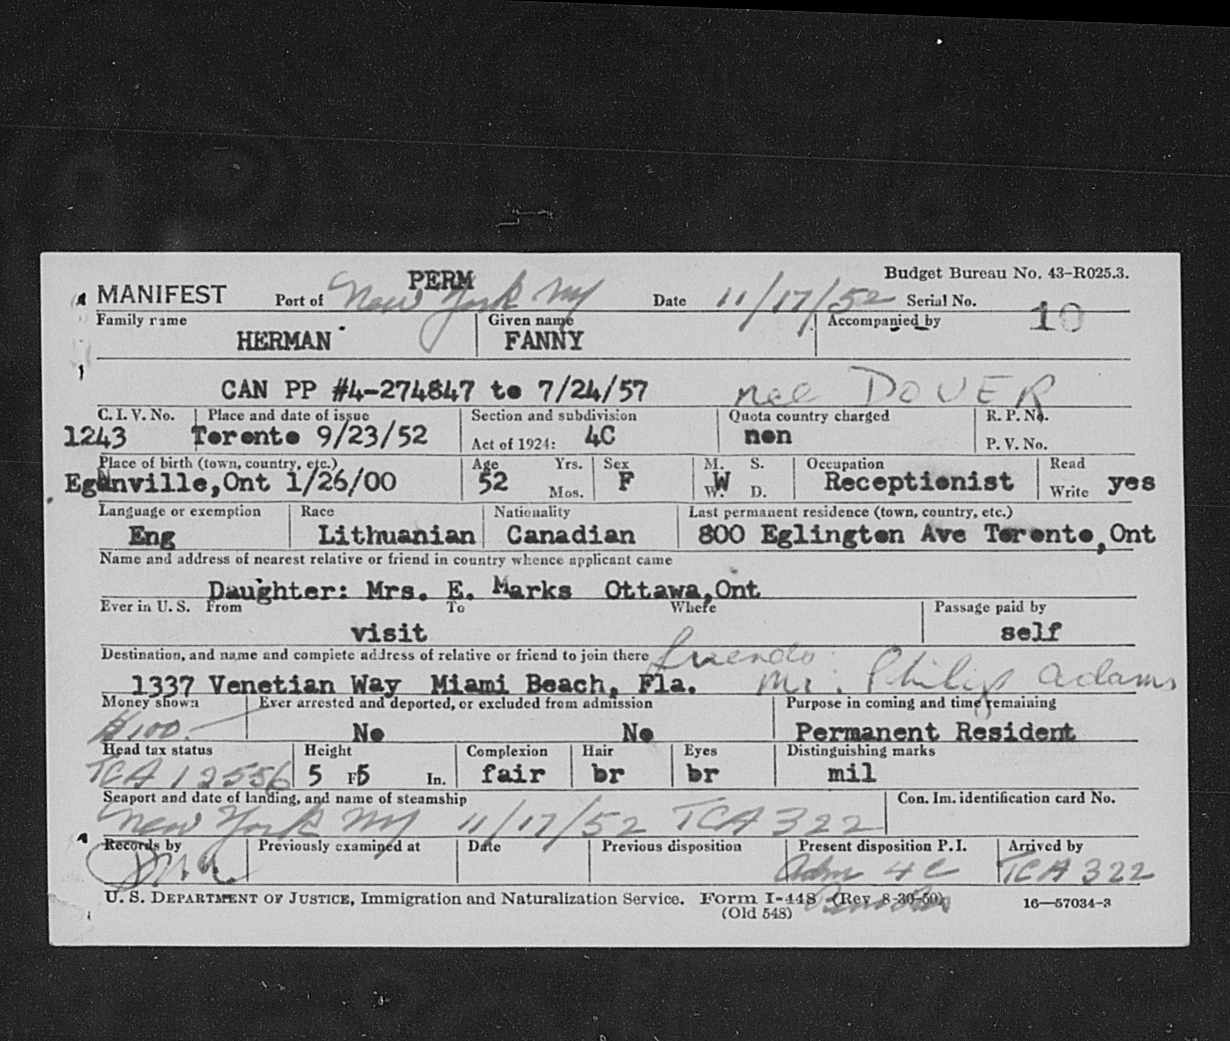 PERM
Budget Bureau No. 43-R025.3.
MANIFEST Port of New York NY Date 11/17/52 Serial No.
10
Family name Given name Accompanied by
HERMAN FANNY
CAN PP #4-274847 to 7/24/57 nee DOVER
C. I. V. No. Place and date of issue Section and subdivision Quota country charged R. P. No.
1243 Toronto 9/23/52 Act of 1924: 4C non P. V. No.
Place of birth (town, country, etc.) Age Yrs. Sex M. S. Occupation Read
Eganville,Ont 1/26/00 52 Mos. F W W. D. Receptionist Write yes
Language or exemption Race Nationality Last permanent residence (town, country, etc.)
Eng Lithuanian Canadian 800 Eglington Ave Toronto,Ont
Name and address of nearest relative or friend in country whence applicant came
Daughter: Mrs. E. Marks Ottawa,Ont
Ever in U. S. From To Where Passage paid by
visit self
Destination, and name and complete address of relative or friend to join there friends:
1337 Venetian Way Miami Beach, Fla. Mr. Philip Adams
Money shown Ever arrested and deported, or excluded from admission Purpose in coming and time remaining
$100.- No No Permanent Resident
Head tax status Height Complexion Hair Eyes Distinguishing marks
TCA 12556 5 Ft 5 In. fair br br mil
Seaport and date of landing, and name of steamship Con. Im. identification card No.
New York NY 11/17/52 TCA 322
Records by Previously examined at Date Previous disposition Present disposition P.I. Arrived by
Adm 4C TCA 322
U. S. DEPARTMENT OF JUSTICE, Immigration and Naturalization Service. Form I-448 (Rev. 8-30-50) 16—57034-3
(Old 548)